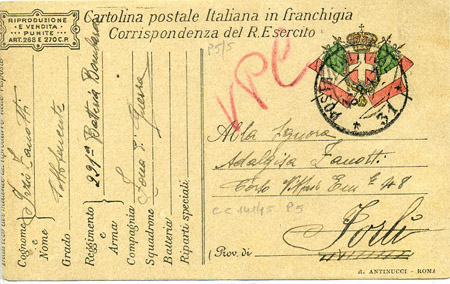 RIPRODUZIONE
E VENDITA
PUNITE
ART. 268 E 270 C.P.
Cartolina postale Italiana in franchigia
Corrispondenza del R. Esercito
P5/5
VPC
POSTA
31
Cognome
e
Nome
Zanotti
Grado
Sottotenente
Reggimento
e
Arma
291ª Batteria
Compagnia
Squadrone
Batteria
Zona di Guerra
Riparti speciali
Alla Signora
Adalgisa Zanotti
Corso Vitt Em E 48
CC 141/45 P5
Forlì
(Prov. di
d. ANTINUCCI - ROMA